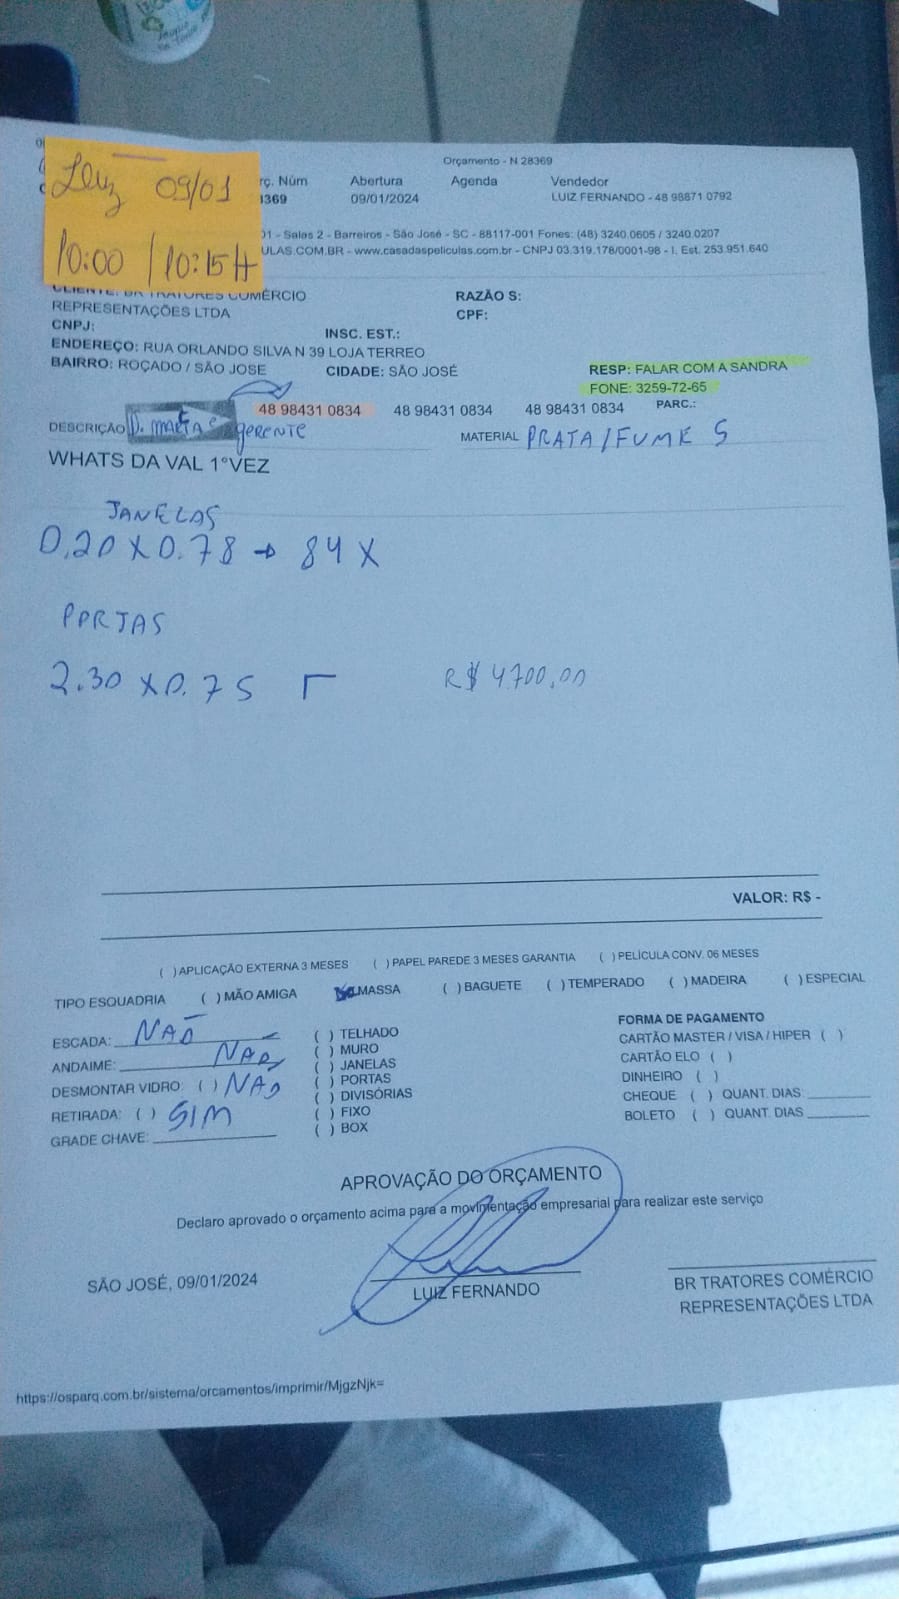 Orçamento - N 28369
Luiz 09/01
10:00 / 10:15H
rç. Núm Abertura Agenda Vendedor
369 09/01/2024 LUIZ FERNANDO - 48 98871 0792
01 - Salas 2 - Barreiros - São José - SC - 88117-001 Fones: (48) 3240.0605 / 3240.0207
ULAS.COM.BR - www.casadaspeliculas.com.br - CNPJ 03.319.178/0001-98 - I. Est. 253.951.640
CLIENTE: BR TRATORES COMÉRCIO RAZÃO S:
REPRESENTAÇÕES LTDA CPF:
CNPJ: INSC. EST.:
ENDEREÇO: RUA ORLANDO SILVA N 39 LOJA TERREO
BAIRRO: ROÇADO / SÃO JOSE CIDADE: SÃO JOSÉ RESP: FALAR COM A SANDRA
FONE: 3259-72-65
48 98431 0834 48 98431 0834 48 98431 0834 PARC.:
DESCRIÇÃO D. gerente MATERIAL PRATA/FUME 5
WHATS DA VAL 1°VEZ
JANELAS
0,20 X 0.78 → 84 X
PORTAS
2.30 X 0.75 R$ 4.700,00
VALOR: R$ -
( )APLICAÇÃO EXTERNA 3 MESES ( )PAPEL PAREDE 3 MESES GARANTIA ( )PELÍCULA CONV. 06 MESES
TIPO ESQUADRIA ( )MÃO AMIGA MASSA ( )BAGUETE ( )TEMPERADO ( )MADEIRA ( )ESPECIAL
ESCADA: NAO ( ) TELHADO FORMA DE PAGAMENTO
ANDAIME: NAO ( ) MURO CARTÃO MASTER / VISA / HIPER ( )
( ) JANELAS CARTÃO ELO ( )
DESMONTAR VIDRO: ( ) NAO ( ) PORTAS DINHEIRO ( )
( ) DIVISÓRIAS CHEQUE ( ) QUANT. DIAS:
RETIRADA: ( ) SIM ( ) FIXO BOLETO ( ) QUANT. DIAS
GRADE CHAVE: ( ) BOX
APROVAÇÃO DO ORÇAMENTO
Declaro aprovado o orçamento acima para a movimentação empresarial para realizar este serviço
SÃO JOSÉ, 09/01/2024 LUIZ FERNANDO BR TRATORES COMÉRCIO
REPRESENTAÇÕES LTDA
https://osparq.com.br/sistema/orcamentos/imprimir/MjgzNjk=